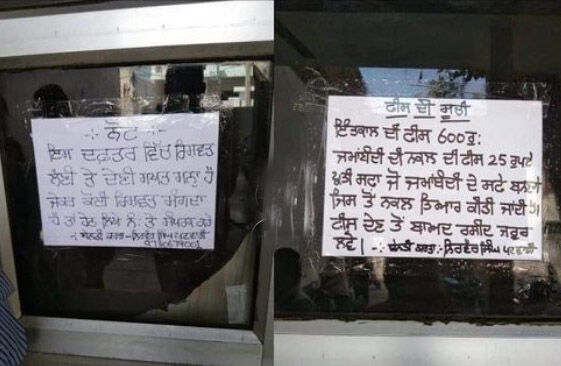 -:- ਨੋਟ -:-
ਇਸ ਦਫ਼ਤਰ ਵਿੱਚ ਰਿਸ਼ਵਤ
ਲੈਣੀ ਤੇ ਦੇਣੀ ਸਖ਼ਤ ਮਨ੍ਹਾ ਹੈ
ਜੇਕਰ ਕੋਈ ਰਿਸ਼ਵਤ ਮੰਗਦਾ
ਹੈ ਤਾਂ ਹੇਠ ਲਿਖੇ ਨੰ: ਤੇ ਸੰਪਰਕ ਕਰੋ
ਬੇਨਤੀ ਕਰਤਾ:- ਨਿਰਵੈਰ ਸਿੰਘ ਪਟਵਾਰੀ
ਫੀਸ ਦੀ ਸੂਚੀ
ਇੰਤਕਾਲ ਦੀ ਫੀਸ 600 ਰੁ:
ਜਮਾਂਬੰਦੀ ਦੀ ਨਕਲ ਦੀ ਫੀਸ 25 ਰੁਪਏ
ਪ੍ਰਤੀ ਸਫ਼ਾ ਜੋ ਜਮਾਂਬੰਦੀ ਦੇ ਸਫੇ
ਜਿਸ ਤੋਂ ਨਕਲ ਤਿਆਰ ਕੀਤੀ ਜਾਂਦੀ
ਫੀਸ ਦੇਣ ਤੋਂ ਬਾਅਦ ਰਸੀਦ ਜ਼ਰੂਰ
ਲਵੋ। -:- ਬੇਨਤੀ ਕਰਤਾ:- ਨਿਰਵੈਰ ਸਿੰਘ ਪਟਵਾਰੀ